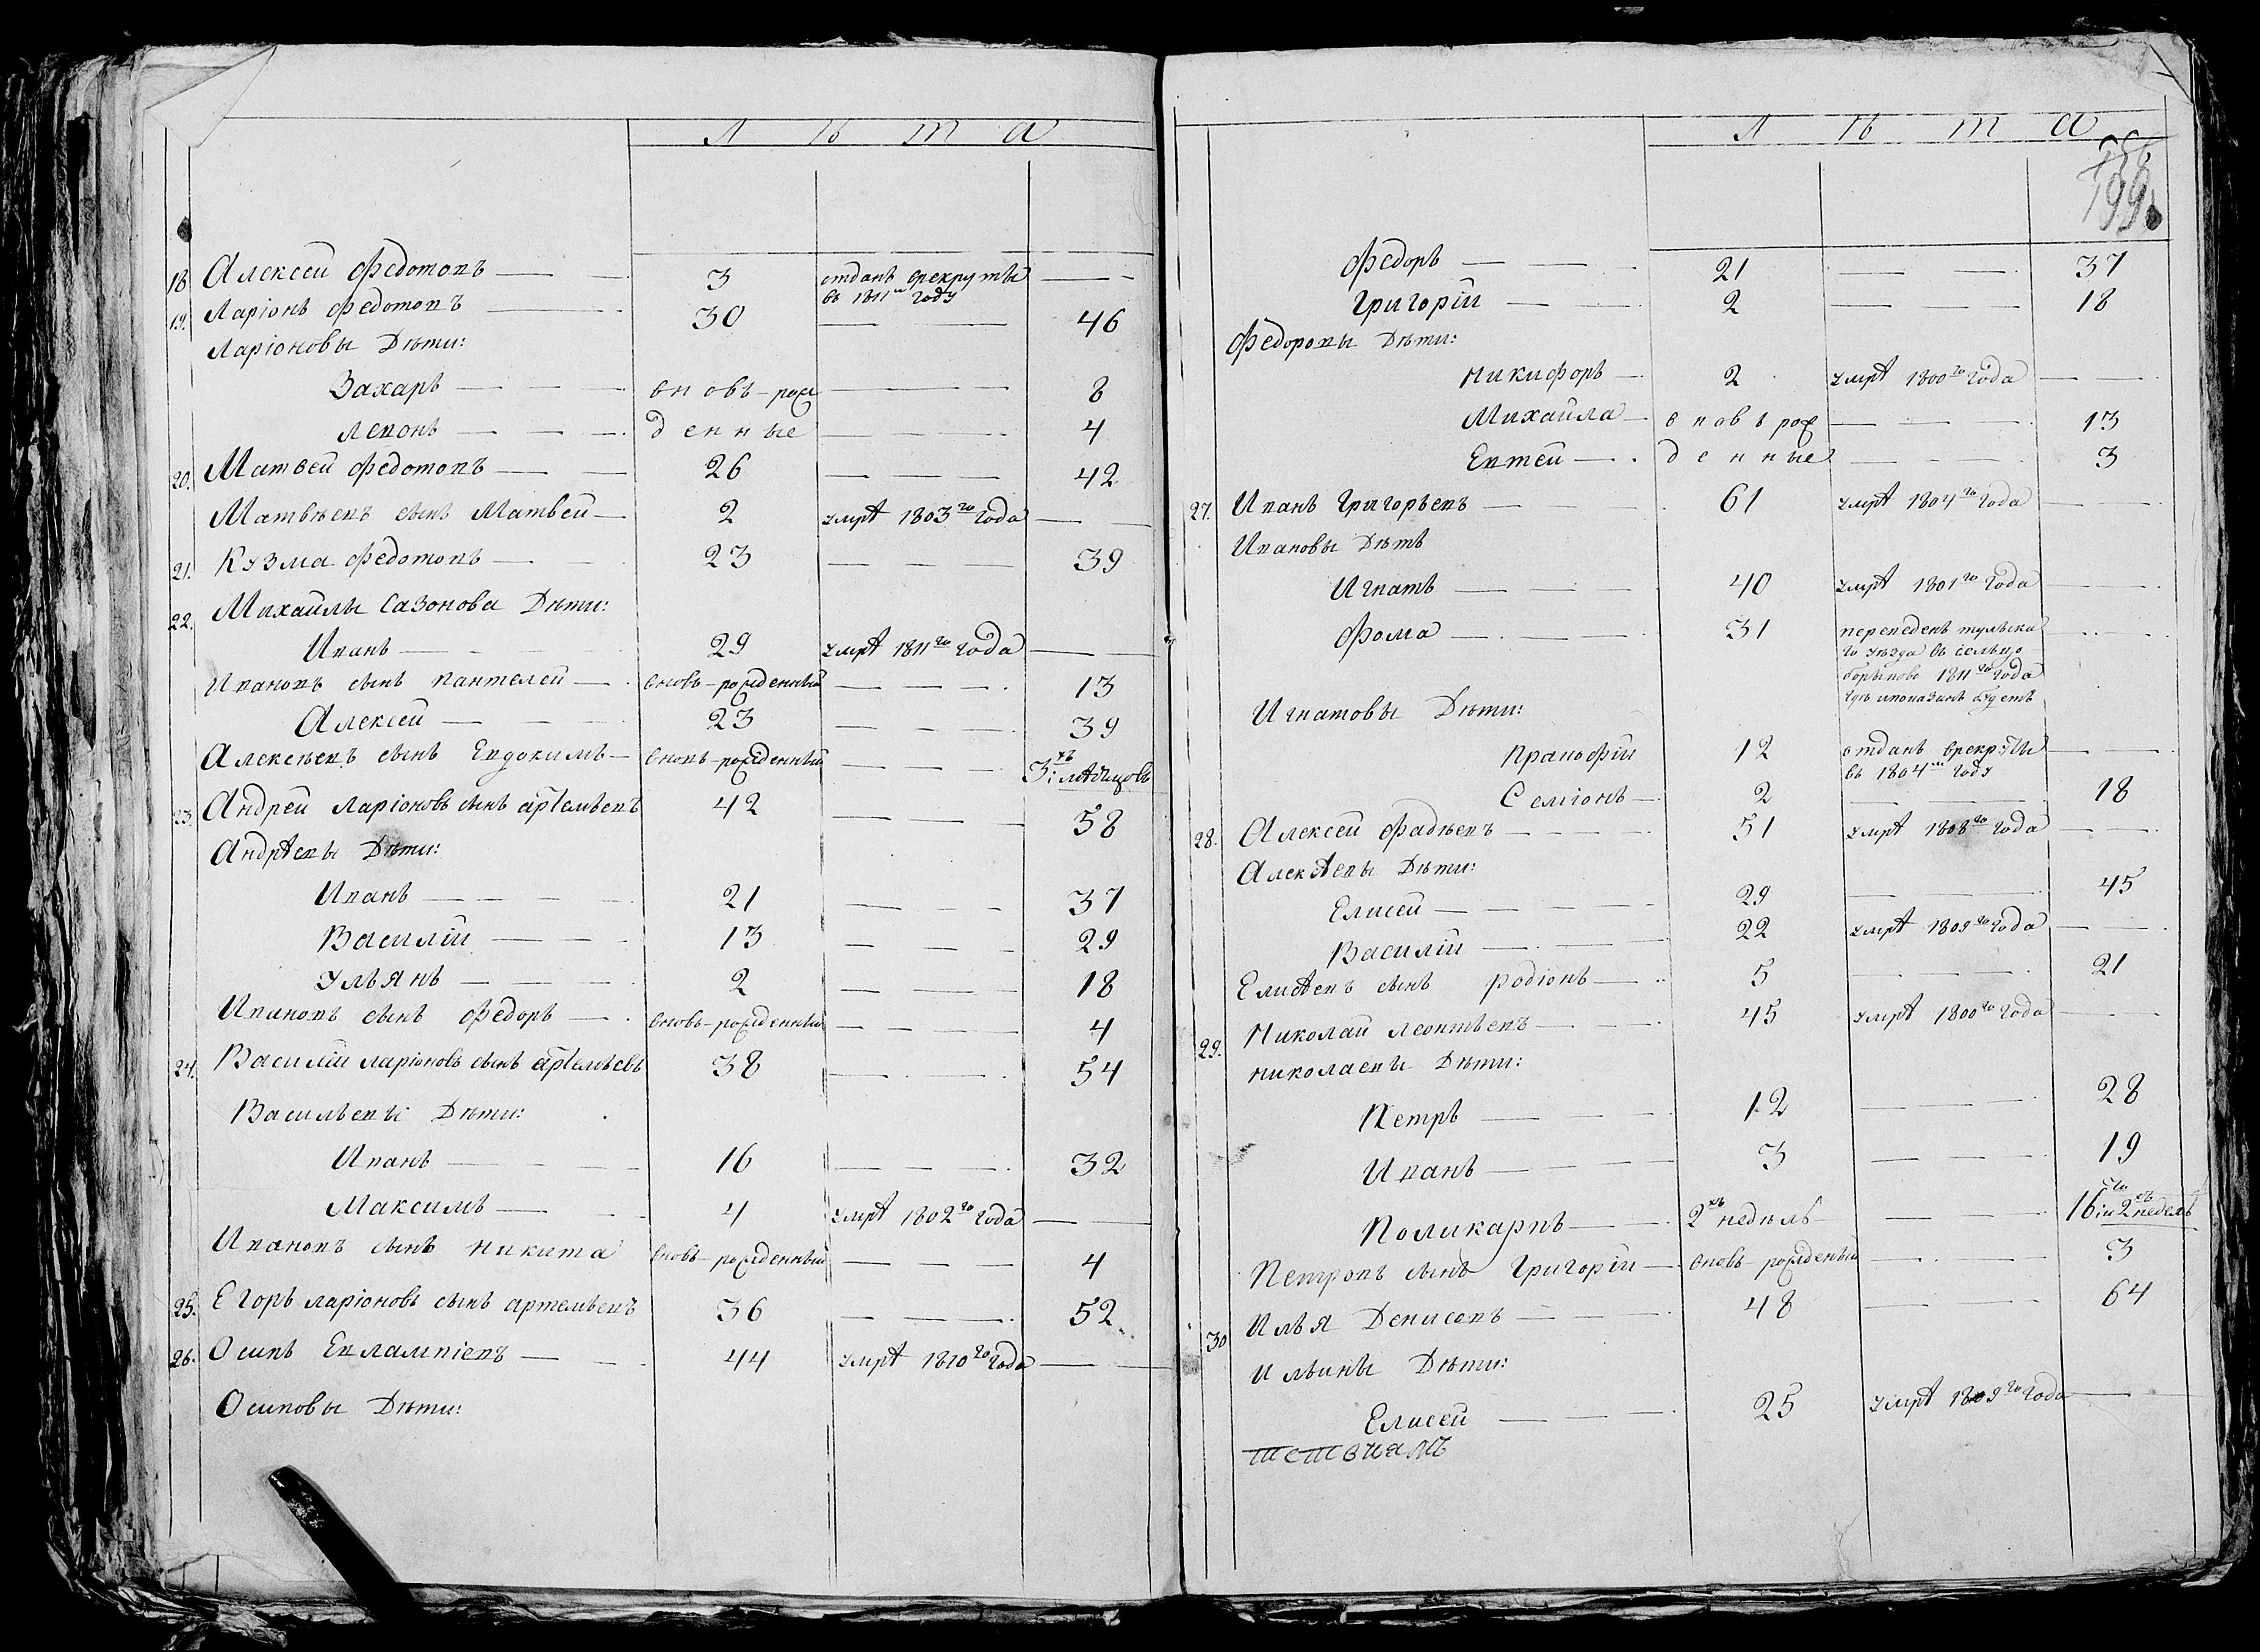 Л ѣ т а
18 Алексей Федотовъ — — 3 отданъ врекруты — —
въ 1811м году
19. Ларіонъ Федотовъ — — 30 — — 46
Ларіоновы Дѣти:
Захаръ — — — вновь-рож — — 8
Левонъ — — — денные — — — 4
20. Матвей Федотовъ — — 26 — — — 42
Матвѣевъ сынъ Матвей — 2 умре 1803го года — —
21. Кузма Федотовъ — — 23 — — — 39
22. Михайлы Сазонова Дѣти:
Иванъ — — — 29 умре 1811го года — —
Ивановъ сынъ Пантелей — вновь-рожденный — — — 13
Алексей — — — 23 — — — 39
Алексѣевъ сынъ Евдокимъ — вновь-рожденный — — — 3хъ мѣсяцовъ
23. Андрей Ларіоновъ сынъ артемьевъ 42 — — — 58
Андреевы Дѣти:
Иванъ — — — 21 — — — 37
Василій — — — 13 — — — 29
Ульянъ — — — 2 — — — 18
Ивановъ сынъ Федоръ — вновь-рожденный — — — 4
24. Василій ларіоновъ сынъ артемьевъ 38 — — — 54
Васильевы Дѣти:
Иванъ — — — 16 — — — 32
Максимъ — — — 4 умре 1802го года — —
Ивановъ сынъ Никита вновь-рожденный — — — 4
25. Егоръ ларіоновъ сынъ артемьевъ 36 — — — 52
26. Осипъ Евлампіевъ — — 44 умре 1810го года — —
Осиповы Дѣти:
Л ѣ т а
199
Федоръ — — — 21 — — 37
Григорій — — — 2 — — — 18
Федоровы Дѣти:
Никифоръ — 2 умре 1800го года — —
Михайла — вновь рож — — — 13
Евтей — денные — — — 3
27. Иванъ Григорьевъ — — — 61 умре 1804го года — —
Ивановы Дѣтѣ
Игнатъ — — — 40 умре 1801го года — —
Фома — — — 31 переведенъ тульска — —
го уѣзда въ сельцо
борыково 1811го года
гдѣ ипоказанъ будетъ
Игнатовы Дѣти:
Пракофій 12 отданъ врекруты — —
въ 1804м году
Семіонъ — 2 — — — 18
28. Алексей Фадѣевъ — — — 51 умре 1808го года — —
Алексеевы Дѣти:
Елисей — — — 29 — — — 45
Василій — — — 22 умре 1809го года — —
Елисеевъ сынъ родіонъ — 5 — — — 21
29. Николай леонтьевъ — — — 45 умре 1800го года — —
николаевы Дѣти:
Петръ — — — 12 — — — 28
Иванъ — — — 3 — — — 19
Поликарпъ — — 2хъ недѣль — — 16ти и 2хъ недель
Петровъ сынъ Григорій — вновь-рожденый — — — 3
30 Илья Денисовъ — — — 48 — — — 64
Ильины Дѣти:
Елисей — — — 25 умре 1809го года — —